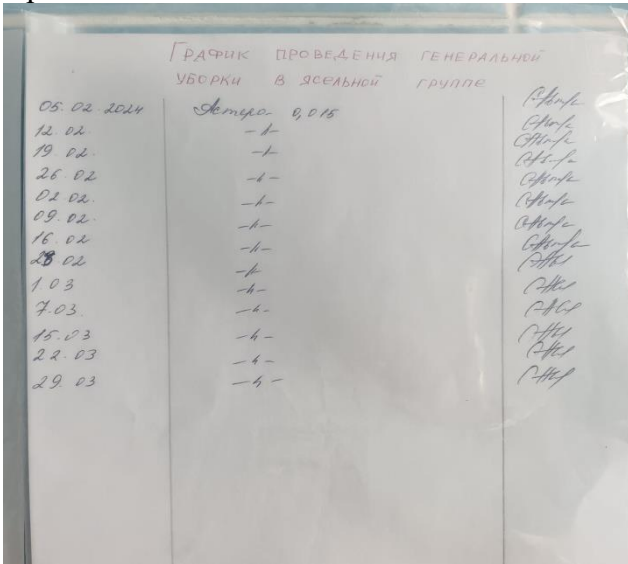 ГРАФИК ПРОВЕДЕНИЯ ГЕНЕРАЛЬНОЙ
УБОРКИ В ЯСЕЛЬНОЙ ГРУППЕ
05.02.2024 Астера 0,015
12.02. -"-
19.02. -"-
26.02 -"-
02.02.
09.02. -"-
16.02 -"-
28.02 -"-
1.03 -"-
7.03. -"-
15.03 -"-
22.03 -"-
29.03 -"-